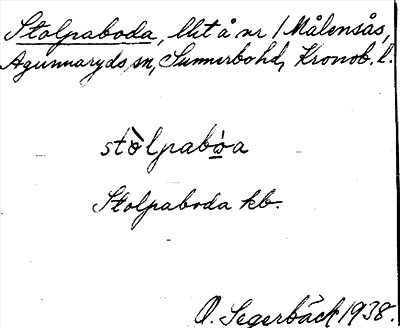 Stolpaboda, llit å nr 1 Målensås,
Agunnaryds sn, Sunnerbo hd, Kronob. l.
stòlpabǫ̀a
Stolpaboda kb.
O. Segerbäck 1938.